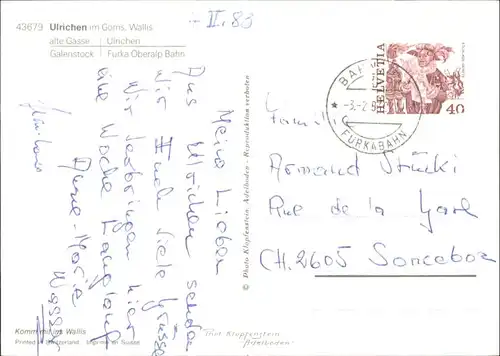 - II. 83
43679 Ulrichen im Goms, Wallis
alte Gasse | Ulrichen
Galenstock | Furka Oberalp Bahn
Meine Lieben
Aus Ulrichen senden
wir Euch viele Grüsse
Wir verbringen hier
eine Woche Langlauf
Anne-Marie
Komm mit ins Wallis
Printed in Switzerland Imprimé en Suisse
© Photo Klopfenstein, Adelboden - Reproduktion verboten
Photo Klopfenstein
Adelboden
HELVETIA
40
-3.-2.
FURKABAHN
Famil
Armand Stücki
Rue de la Gare
CH. 2605 Sonceboz